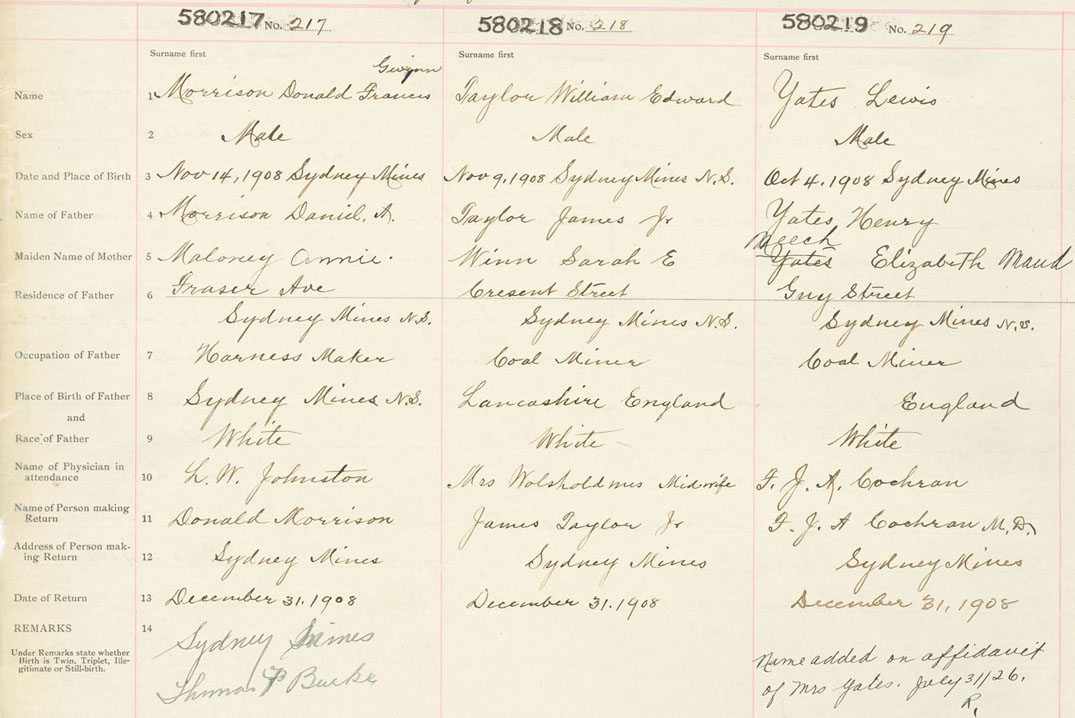 580217 No. 217 580218 No. 218 580219 No. 219
Surname first Surname first Surname first
Gwynn
Name 1 Morrison Donald Francis Taylor William Edward Yates Lewis
Sex 2 Male Male Male
Date and Place of Birth 3 Nov 14, 1908 Sydney Mines Nov 9, 1908 Sydney Mines N.S. Oct 4, 1908 Sydney Mines
Name of Father 4 Morrison Daniel. A. Taylor James Jr Yates, Henry
Meech
Maiden Name of Mother 5 Maloney Annie. Winn Sarah E Yates Elizabeth Maud
Residence of Father 6 Fraser Ave Cresent Street Guy Street
Sydney Mines N.S. Sydney Mines N.S. Sydney Mines N.S.
Occupation of Father 7 Harness Maker Coal Miner Coal Miner
Place of Birth of Father 8 Sydney Mines N.S. Lancashire England England
and
Race of Father 9 White White White
Name of Physician in
attendance 10 L. W. Johnston Mrs Wolsholdmes Midwife F. J. A. Cochran
Name of Person making
Return 11 Donald Morrison James Taylor Jr F. J. A Cochran M.D.
Address of Person mak-
ing Return 12 Sydney Mines Sydney Mines Sydney Mines
Date of Return 13 December 31. 1908 December 31. 1908 December 31, 1908
REMARKS 14 Sydney Mines
Under Remarks state whether
Birth is Twin, Triplet, Ille-
gitimate or Still-birth.
Thomas P Burke
Name added on affidavit
of Mrs Yates. July 31/26.
R.